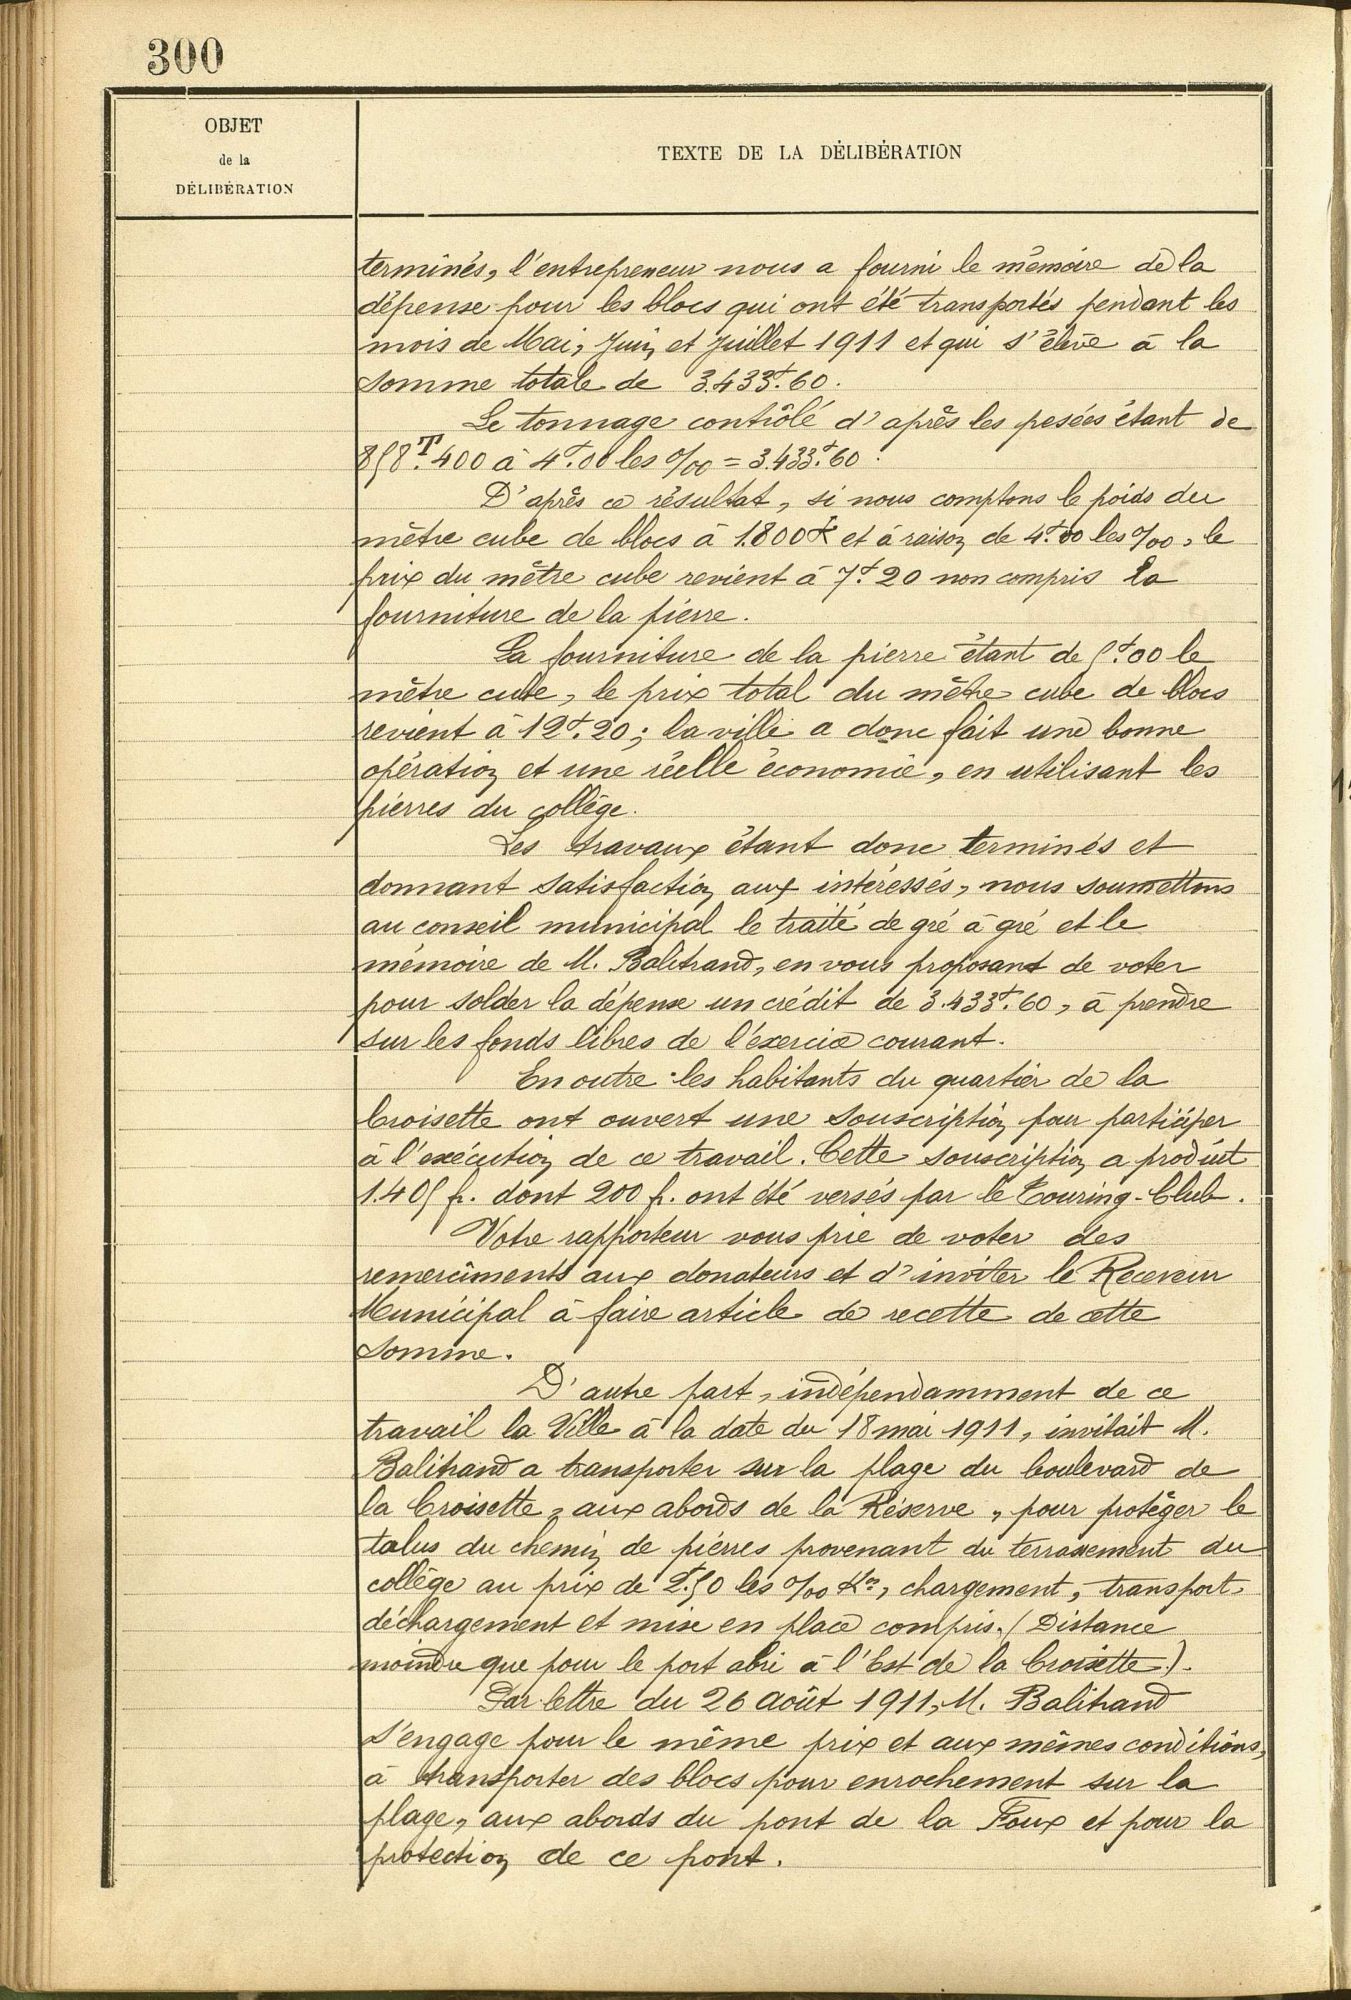 300
OBJET
de la
DÉLIBÉRATION
TEXTE DE LA DÉLIBÉRATION
terminés, l'entrepreneur nous a fourni le mémoire de la
dépense pour les blocs qui ont été transportés pendant les
mois de Mai, Juin et Juillet 1911 et qui s'élève à la
somme totale de 3.433f.60.
Le tonnage contrôlé d'après les pesées étant de
858T.400 à 4f.00 les %00 = 3.433f.60.
D'après ce résultat, si nous comptons le poids du
mètre cube de blocs à 1.800K et à raison de 4f.00 les %00, le
prix du mètre cube revient à 7f.20 non compris la
fourniture de la pierre.
La fourniture de la pierre étant de 5f.00 le
mètre cube, le prix total du mètre cube de blocs
revient à 12f.20; la ville a donc fait une bonne
opération et une réelle économie, en utilisant les
pierres du collège.
Les travaux étant donc terminés et
donnant satisfaction aux intéressés, nous soumettons
au conseil municipal le traité de gré à gré et le
mémoire de M. Balitrand, en vous proposant de voter
pour solder la dépense un crédit de 3.433f.60, à prendre
sur les fonds libres de l'exercice courant.
En outre les habitants du quartier de la
Croisette ont ouvert une souscription pour participer
à l'exécution de ce travail. Cette souscription a produit
1.405 fr. dont 200 fr. ont été versés par le Touring-Club.
Votre rapporteur vous prie de voter des
remerciments aux donateurs et d'inviter le Receveur
Municipal à faire article de recette de cette
somme.
D'autre part, indépendamment de ce
travail la Ville à la date du 18 mai 1911, invitait M.
Balitrand a transporter sur la plage du boulevard de
la Croisette, aux abords de la Réserve, pour protéger le
talus du chemin de pierres provenant du terrassement du
collège au prix de 2f.50 les %00 Kos, chargement, transport,
déchargement et mise en place compris. (Distance
moindre que pour le port abri à l'Est de la Croisette).
Par lettre du 26 août 1911, M. Balitrand
s'engage pour le même prix et aux mêmes conditions,
à transporter des blocs pour enrochement sur la
plage, aux abords du pont de la Foux et pour la
protection de ce pont.